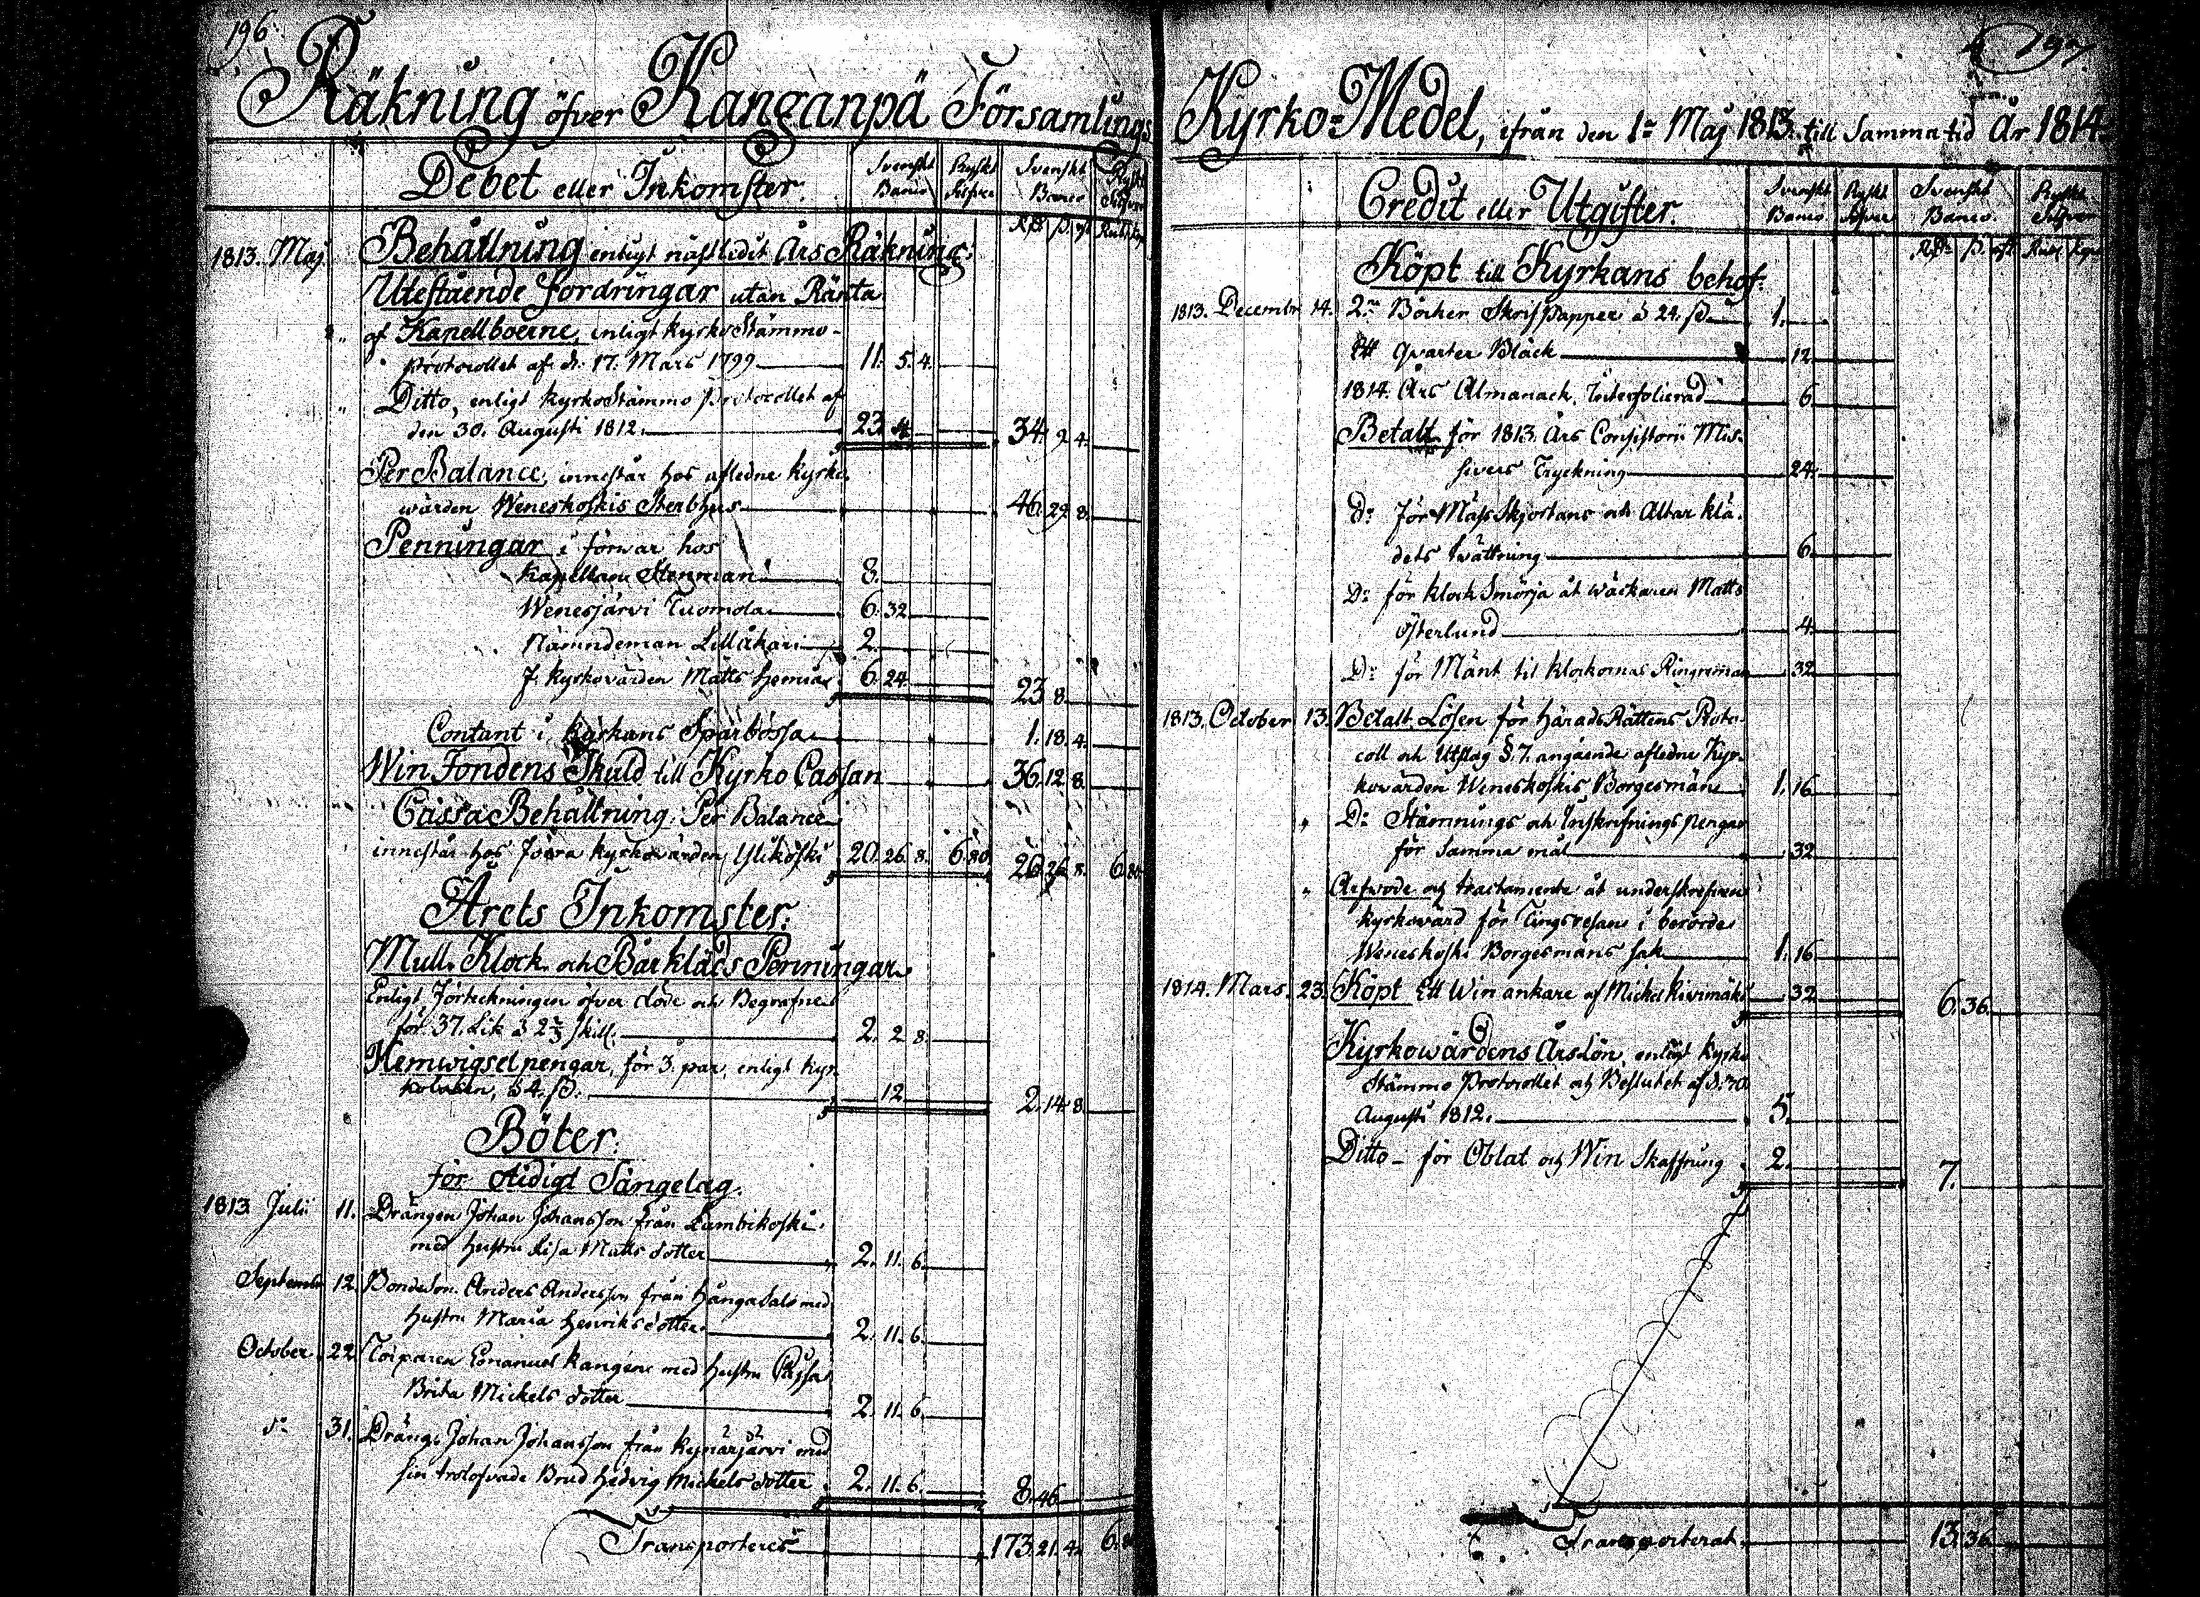 196.
Räkning öfver Kanganpä Församlings
Debet eller Inkomster.
Svenskt Banco
Ryskt Silfver
Svenskt Banco
Ryskt Silfver
1813. Maj. Behållning enligt nästledit Års Räkning:
Utestående fordringar utan Ränta
" af Kapellboerne, enligt KyrkoStämmo-
protocollet af d. 17. Mars 1799 11. 5. 4.
" Ditto, enligt KyrkoStämmo Protocollet af
den 30. Augusti 1812. 23. 4. 34. 9. 4.
Per Balance, innestår hos afledne Kyrko-
wärden Weneskoskis Sterbhus 46. 29. 8.
Penningar i förwar hos
Kapellanen Stenman 8.
Wenesjärvi Tuomola 6. 32
Nämndeman Lillåkari 2.
f. Kyrkovärden Matts 6. 24. 23. 8.
Contant i Kyrkans Sparbössa 1. 18. 4.
Win Fondens Skuld till Kyrko Cassan 36. 12. 8.
Cassa Behållning Per Balance
innestår hos förra Kyrkovärden Ylikoski 20. 26. 8. 6. 80. 20. 26. 8. 6. 80.
Årets Inkomster:
Mull- Klock- och Bårkläds Penningar.
Enligt Förteckningen öfver döde och Begrafne
för 37. Lik à 2 2/3 skill. 2. 2. 8.
Hemwigselpengar, för 3. par, enligt Kyr-
kolagen, à 4. ß. 12 2. 14. 8.
Böter.
för otidigt Sängelag.
1813 Julii 11. Drängen Johan Johansson från Lambikoski
med hustru Lisa Matts dotter 2. 11. 6.
September 12. Bondeson Anders Andersson från Hångasalo med
hustru Maria Henriks dotter. 2. 11. 6.
October 22. Torparen Emanuel Kangen med hustru
Brita Mickels dotter 2. 11. 6.
do 31. Dräng. Johan Johansson från Kynärjärvi med
sin trolofvade Brud Hedvig Mickels dotter 2. 11. 6. 8. 46
Transporteres 173. 21. 4. 6. 80
197.
Kyrko-Medel, ifrån den 1a Maj 1813. till samma tid År 1814.
Credit eller Utgifter.
Svenskt Banco.
Ryskt Silfver
Svenskt Banco.
Ryskt Silfver
Köpt till Kyrkans behof:
1813. Decembr 14. 2ne Böcker Skrifpapper à 24. ß. 1.
Ett quarter Bläck 12
1814. Års Almanack, Interfolierad 6.
Betalt för 1813. Års Consistorii Mis-
sivers Tryckning 24.
Do för MässSkjortans och Altar klä-
dets twättning 6.
Do för klockSmörja åt wäckaren Matts
Österlund 4.
Do för Månt til klockornas Ringremar 32
1813. October 13. Betalt Lösen för HäradsRättens Proto-
coll och Utslag § 7. angående afledne Kyr-
kovärden Weneskoskis Borgesmän 1. 16
" Do Stämnings och Inskrifningspengar
för samma mål 32
" Arfvode och tractamente åt underskrefven
Kyrkovärd för Tingsresan i berörde
Weneskoski Borgesmäns sak 1. 16
1814. Mars. 23. Köpt Ett Win ankare af Mickel Kivimäki 32 6. 36.
Kyrkowärdens Årslön, enligt Kyrko
Stämmo Protocollet och Beslutet af d. 30
Augusti 1812. 5.
Ditto - för Oblat och Win Skaffning 2. 7.
Transporterat 13. 36.